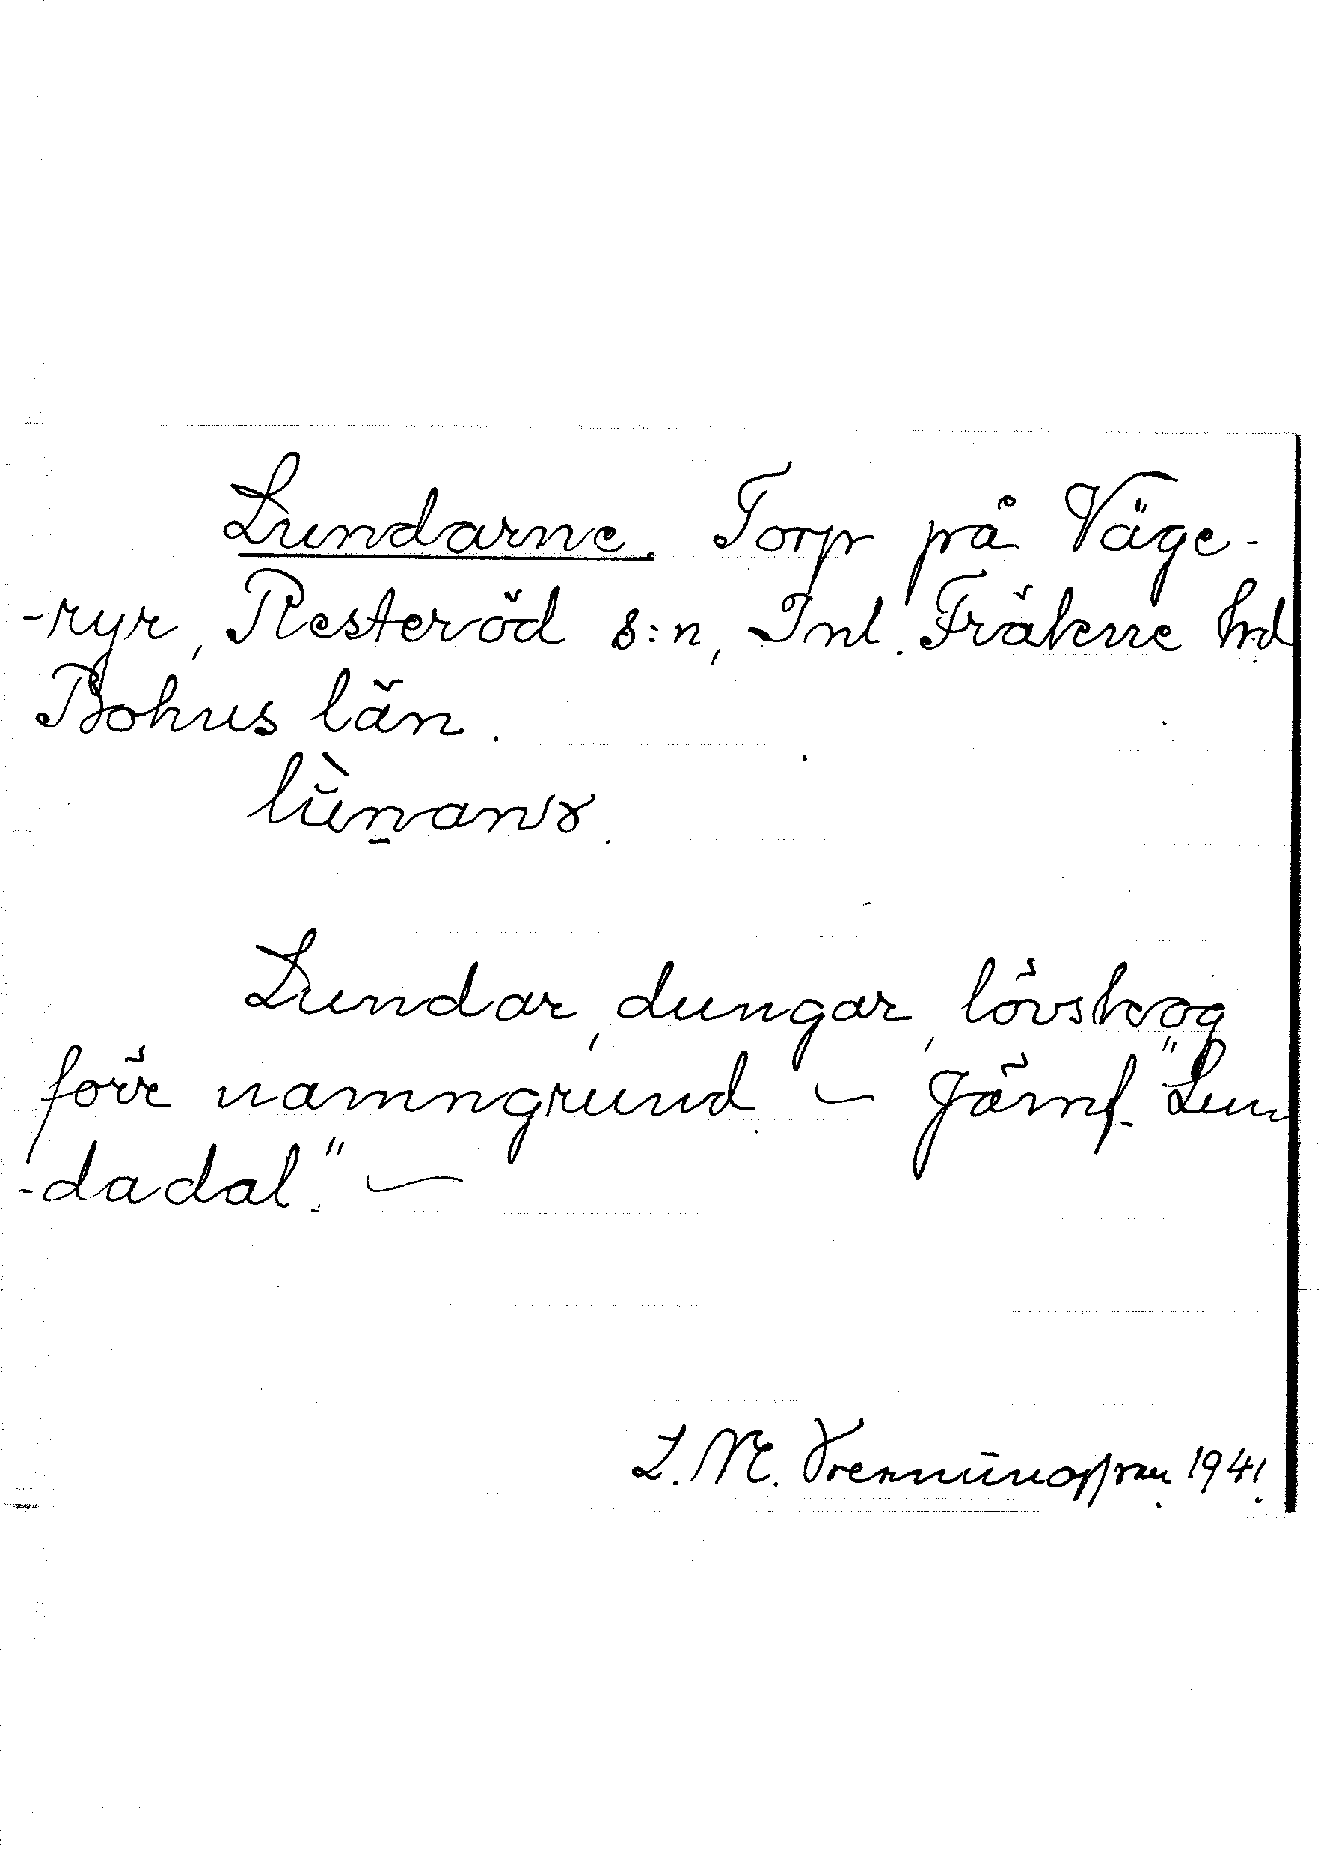 Lundarne. Torp på Väge-
-ryr, Resteröd s:n, Inl. Fräkne hd
Bohus län.
Lundar, dungar, lövskog
förr namngrund – Jämf. "Lun
-dadal." –
L. M. 1941.